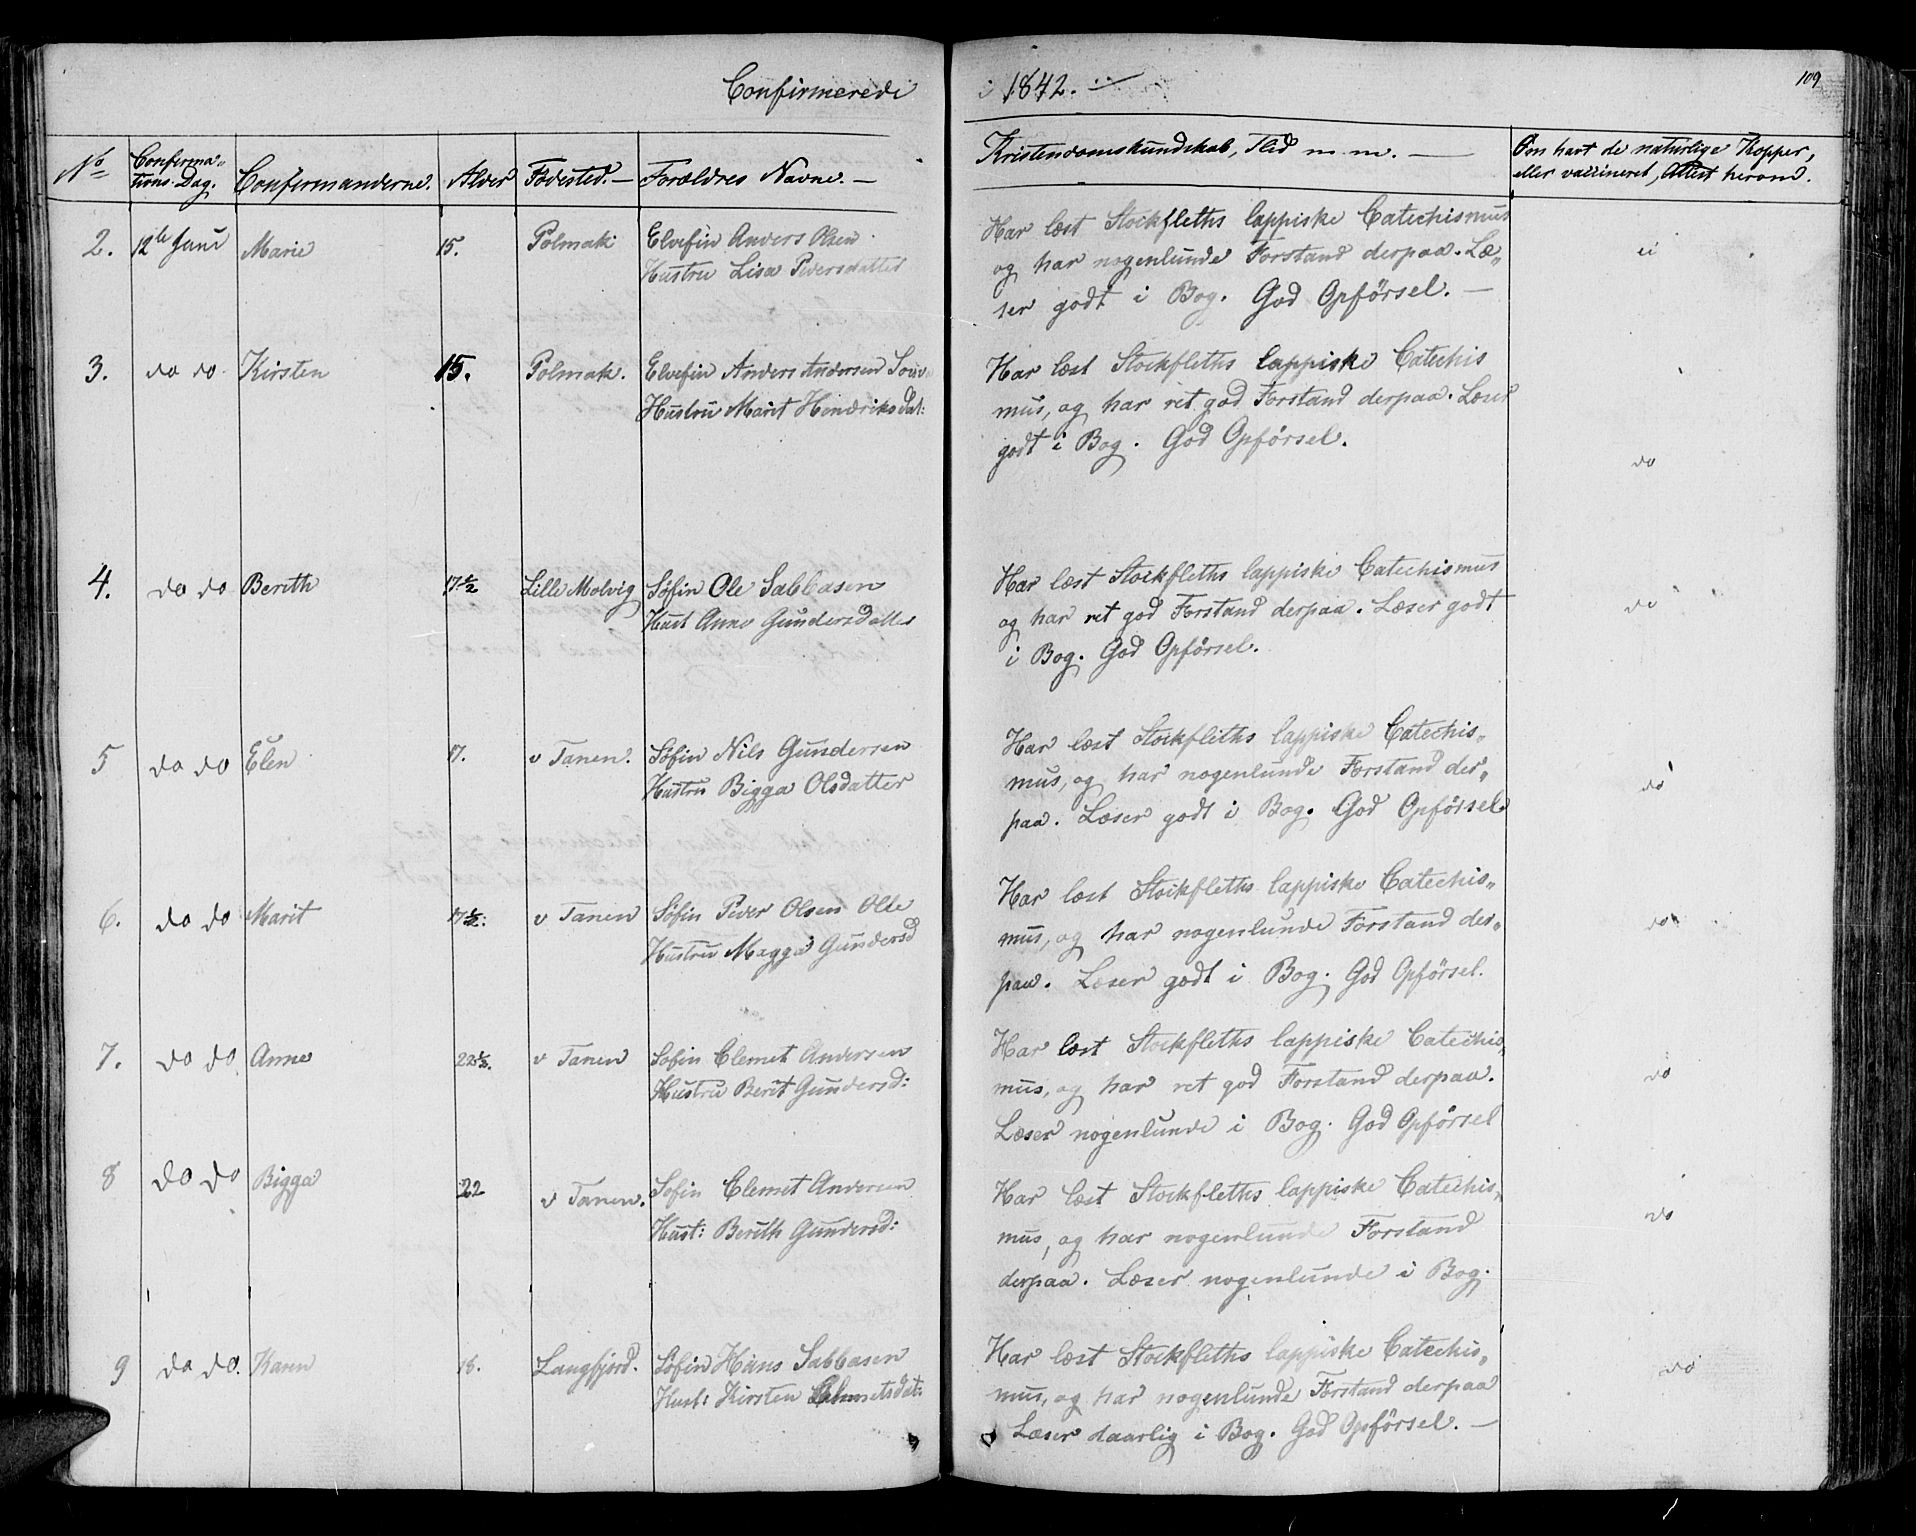 Confirmerede
i 1842.
109
No
Conferma-
tions-Dag.
Confirmanderne.
Alder
Födested.
Forældres Navne.
Kristendomskundskab, Flid m. m.
Om havt de naturlige Kopper,
eller vaccineret, Attest herom.
2. 12te Juni Marie 15. Polmak Elvefin Anders Olsen
Hustru Lisa Piversdatter
Har læst Stockfleths lappiske Catechismus
og har nogenlunde Forstand derpaa. Læ-
ser godt i Bog. God Opførsel.
ei
3. do do Kirsten 15. Polmak. Elvefin Anders Andersen
Hustru Marit Hendriksdat:
Har læst Stockfleths lappiske Catechis
mus, og har ret god Forstand derpaa. Læser
godt i Bog. God Opførsel.
do
4. do do Berith 17½ Lille Molvig Søfin Ole Sabbasen
Hust Anne Gundersdatter
Har læst Stockfleths lappiske Catechismus
og har ret god Forstand derpaa. Læser godt
i Bog. God Opførsel.
do
5 do do Elen 17. v Tanen. Søfin Nils Gundersen
Hustru Bigga Olsdatter
Har læst Stockfleths lappiske Catechis-
mus, og har nogenlunde Forstand der-
paa. Læser godt i Bog. God Opførsel
do
6. do do Marit 17½: v Tanen Søfin Piver Olsen
Hustru Magga Gundersd
Har læst Stockfleths lappiske Catechis-
mus, og har nogenlunde Forstand der-
paa. Læser godt i Bog. God Opførsel.
do
7. do do Anne 22½. v Tanen Søfin Clemet Andersen
Hustru Berit Gundersd:
Har læst Stockfleths lappiske Catechis-
mus, og har ret god Forstand derpaa.
Læser nogenlunde i Bog. God Opførsel
do
8 do do Bigga 22 v Tanen. Søfin Clemet Andersen
Hust: Berith Gundersd:
Har læst Stockfleths lappiske Catechis-
mus, og har nogenlunde Forstand
derpaa. Læser nogenlunde i Bog.
do
9 do do. Karen 18. Langfjord. Søfin Hans Sabbasen
Hust: Kirsten Clemetsdat:
Har læst Stockfleths lappiske Catechis-
mus, og har nogenlunde Forstand derpaa
Læser daarlig i Bog. God Opførsel.
do